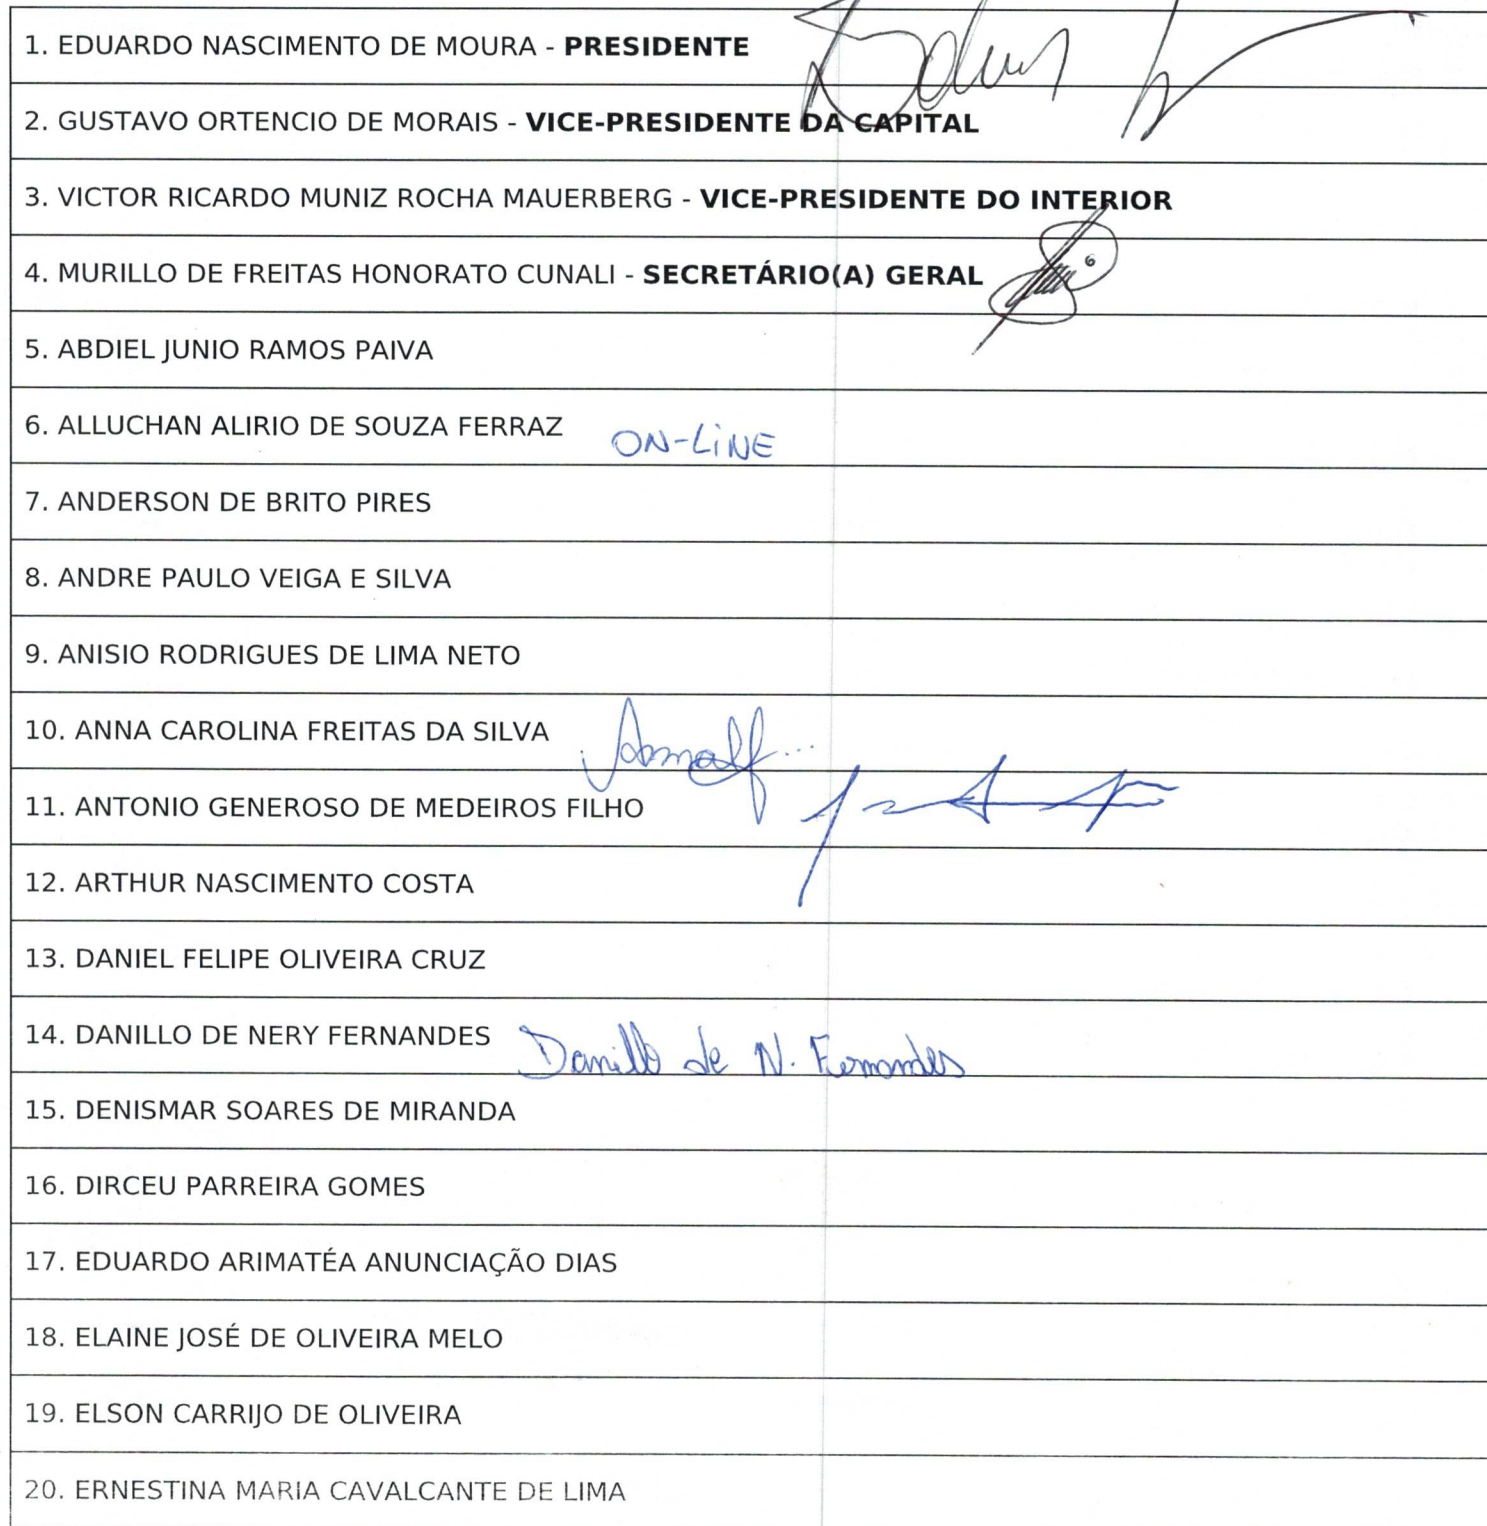 1. EDUARDO NASCIMENTO DE MOURA - PRESIDENTE
2. GUSTAVO ORTENCIO DE MORAIS - VICE-PRESIDENTE DA CAPITAL
3. VICTOR RICARDO MUNIZ ROCHA MAUERBERG - VICE-PRESIDENTE DO INTERIOR
4. MURILLO DE FREITAS HONORATO CUNALI - SECRETÁRIO(A) GERAL
5. ABDIEL JUNIO RAMOS PAIVA
6. ALLUCHAN ALIRIO DE SOUZA FERRAZ ON-LiNE
7. ANDERSON DE BRITO PIRES
8. ANDRE PAULO VEIGA E SILVA
9. ANISIO RODRIGUES DE LIMA NETO
10. ANNA CAROLINA FREITAS DA SILVA
11. ANTONIO GENEROSO DE MEDEIROS FILHO
12. ARTHUR NASCIMENTO COSTA
13. DANIEL FELIPE OLIVEIRA CRUZ
14. DANILLO DE NERY FERNANDES Danillo de N. Fernandes
15. DENISMAR SOARES DE MIRANDA
16. DIRCEU PARREIRA GOMES
17. EDUARDO ARIMATÉA ANUNCIAÇÃO DIAS
18. ELAINE JOSÉ DE OLIVEIRA MELO
19. ELSON CARRIJO DE OLIVEIRA
20. ERNESTINA MARIA CAVALCANTE DE LIMA